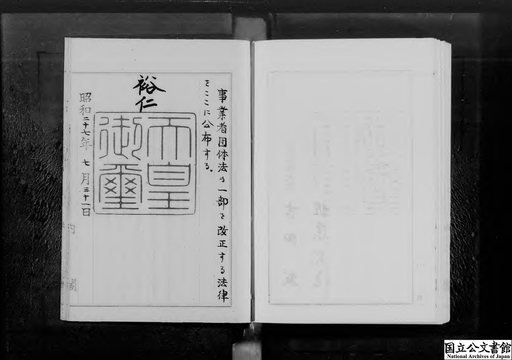 事業者団体法の一部を改正する法律
をここに公布する。
裕仁
天皇
御璽
昭和二十七年七月三十一日
内閣
国立公文書館
National Archives of Japan